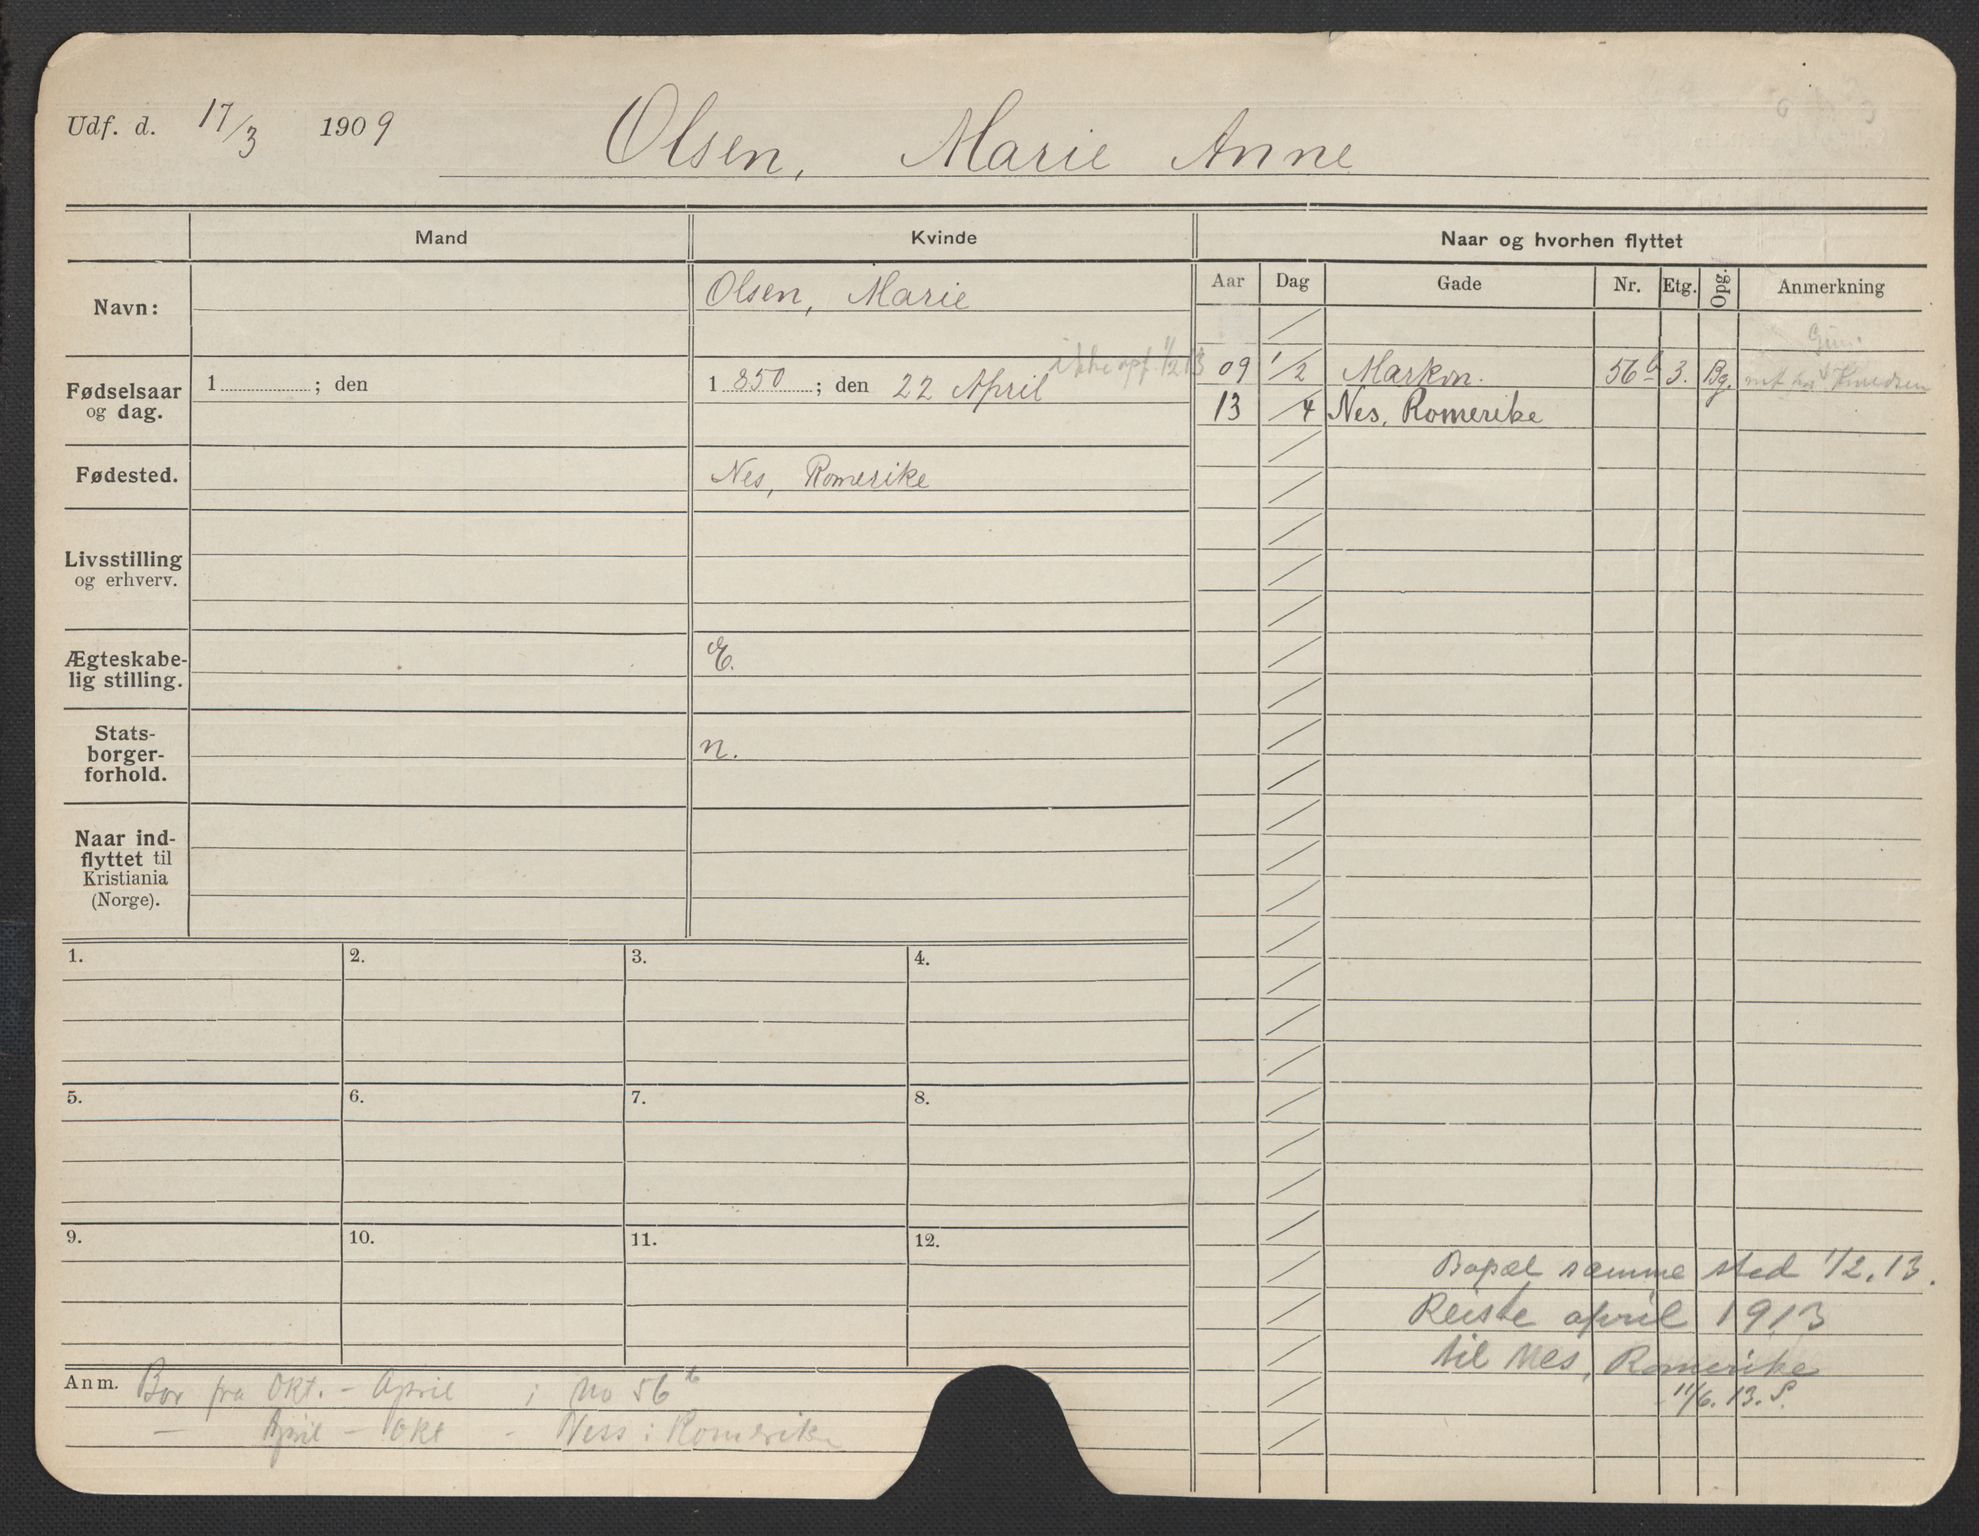 Udf. d. 17/3 1909 Olsen, Marie Anne
Mand Kvinde Naar og hvorhen flyttet
Aar Dag Gade Nr. Etg. Opg. Anmerkning
Navn: Olsen, Marie
Fødselsaar og dag. 1 ; den 1 850 ; den 22 April
ikke opf. 1/2 13
09 1/2 Markvn. 56b 3. Bg. Knudsen
13 /4 Nes, Romerike
Fødested. Nes, Romerike
Livsstilling
og erhverv.
Ægteskabe-
lig stilling. E.
Stats-
borger-
forhold. n.
Naar ind-
flyttet til
Kristiania
(Norge).
1. 2. 3. 4.
5. 6. 7. 8.
9. 10. 11. 12.
Bopæl samme sted 1/2.13.
Reiste april 1913
til Nes, Romerike
11/6.13.S.
Anm. Bor fra Okt. - April i No 56b
— April - Okt - Ness i Romerike